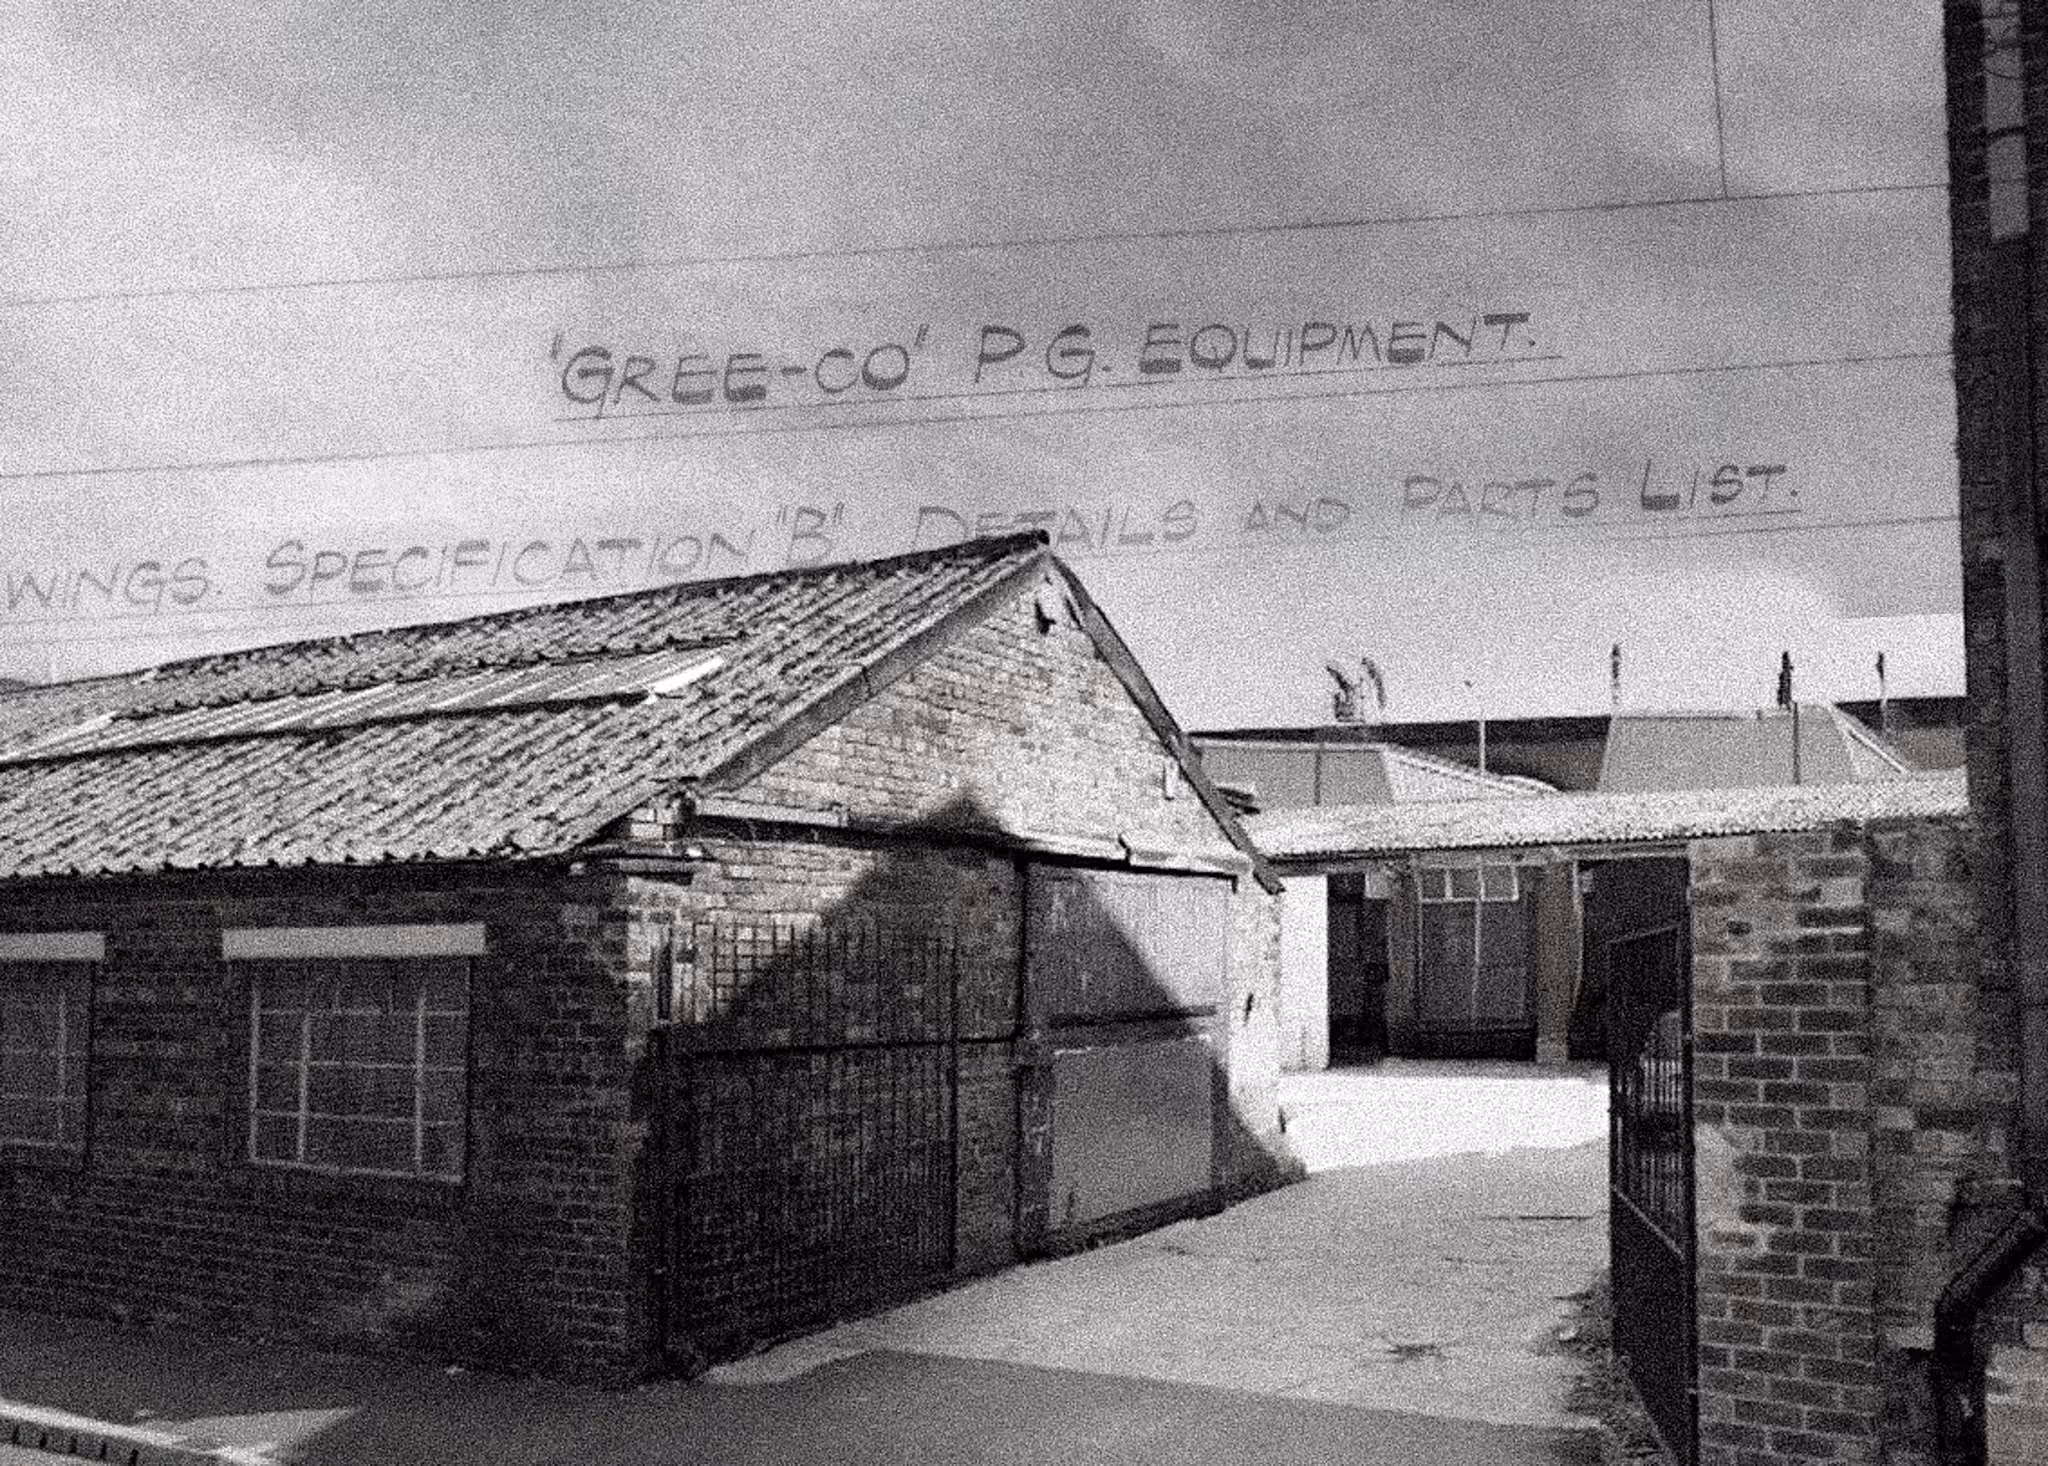 "GREE-CO" P.G. EQUIPMENT.
WINGS. SPECIFICATION "B". DETAILS AND PARTS LIST.